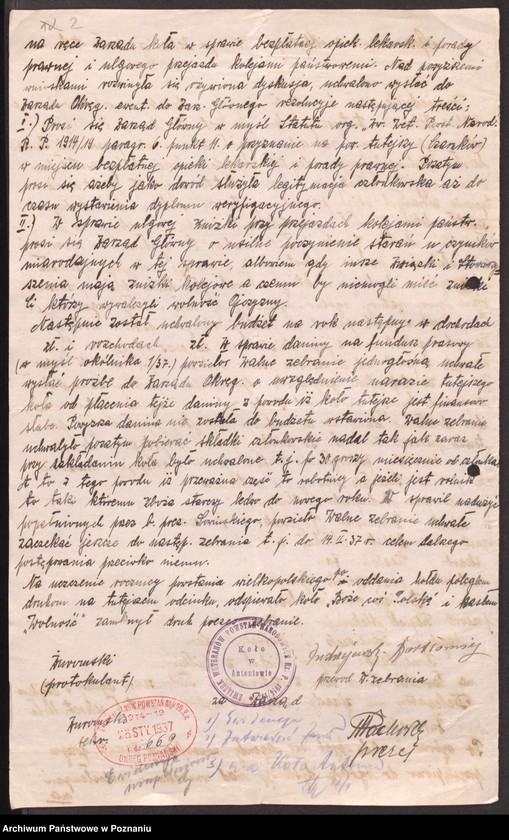 na ręce Zarządu koła w sprawie bezpłatnej opieki lekarsk. i porady
prawnej i ulgowego przejazdu kolejami państwowemi. Nad powyższemi
wnioskami rozwinęła się ożywiona dyskusja, uchwalono wysłać do
Zarządu Okręg. ewent. do Zarz. Głównego rezolucje następującej treści:
I.) Prosi się Zarząd Główny w myśl Statutu org. Zw. Wet. Powst. Narod.
R. P. 1914/19 paragr. 6. punkt 11. o przyznanie na pow. tutejszy (Czarnków)
w miejscu bezpłatnej opieki lekarskiej i porady prawnej. Pozatym
prosi się ażeby jako dowód służyła legitymacja członkowska aż do
czasu wystawienia dyplomu weryfikacyjnego.
II.) W sprawie ulgowej zniżki przy przejazdach kolejami państw.
prosi się Zarząd Główny o usilne poczynienie starań u czynników
miarodajnych w tej sprawie, albowiem gdy insze związki i Stowarzy-
szenia mają zniżki kolejowe a czemu by niemogli mieć zniżki
Ci którzy wywalczyli wolność Ojczyzny.
Następnie został uchwalony budżet na rok następny w dochodach
zł. i rozchodach zł. W sprawie daniny na fundusz prasowy
(w myśl okólnika 1/37.) powzięło Walne zebranie jednogłośną uchwałę
wysłać prośbę do Zarządu Okręg. o uwzględnienie narazie tutejszego
koła od płacenia tejże daniny z powodu iż koło tutejsze jest finansowo
słabe. Powyższa danina nie została do budżetu wstawiona. Walne zebranie
uchwaliło pozatym pobierać składki członkowskie nadal tak jak zaraz
przy zakładaniu koła było uchwalone t. j. po 30 groszy miesięcznie od członka
a to z tego powodu iż przeważna część to robotnicy a jeżeli jest rolnik
to taki któremu zboża starczy ledwo do nowego roku. W sprawie nadużyć
popełnionych przez b. prez. powzięło Walne zebranie uchwałę
zaczekać jeszcze do następ. zebrania t. j. do 14. II. 37 r. celem dalszego
postępowania przeciwko niemu.
Na uczczenie rocznicy powstania wielkopolskiego i oddania hołdu poległym
druhom na tutejszem odcinku, odśpiewało koło „Boże coś Polskę" i hasłem
„Wolność" zamknął druh prezes zebranie.
(protokulant)
Koło
w
Antoniewie
przewod. W. zebrania
za Zarząd
sekr.
prezes
26 STY. 1937
669
1)
2)
3)
Archiwum Państwowe w Poznaniu